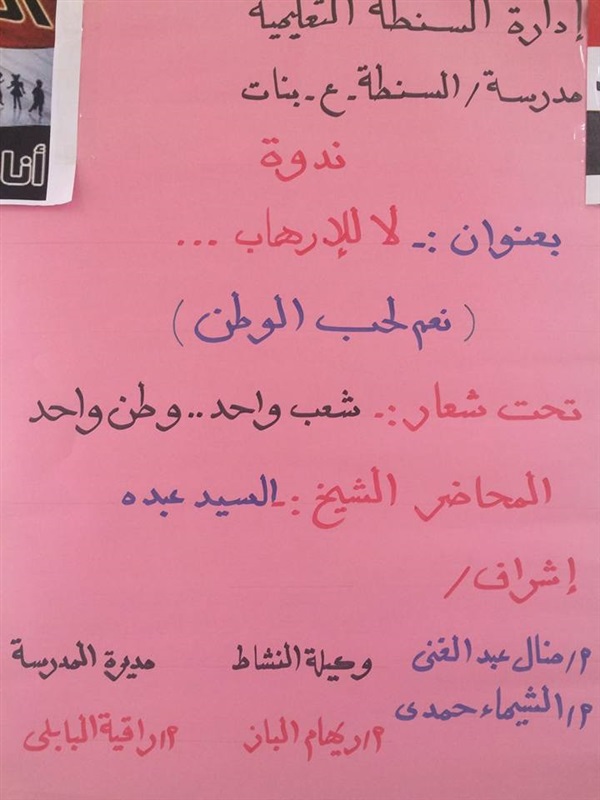 إدارة السنطة التعليمية
مدرسة / السنطة ـ ع ـ بنات
ندوة
بعنوان :ـ لا للإرهاب ...
( نعم لحب الوطن )
تحت شعار :ـ شعب واحد .. وطن واحد
المحاضر الشيخ :ـ السيد عبده
إشراف /
م/ منال عبد الغنى وكيلة النشاط مديرة المدرسة
م/ الشيماء حمدى
م/ ريهام الباز م/ راقية البابلى
أنا